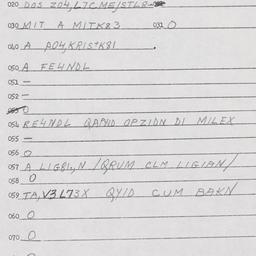 020 DOS Z04, L7C, ME/STL8-
030 MIT A MITK83 031 O
040 A A04, KRIS+K81 .
050 A FE4NDL
051 -
052 -
053 O
054 RE4NDL QAPIO OPZION DI MILEX
055 -
056 O
057 A LIG81, N /QRUM CLM LIGIAN/
058 O
059 TA, V3L73X QYID CUM BAKN
060 O
070 O